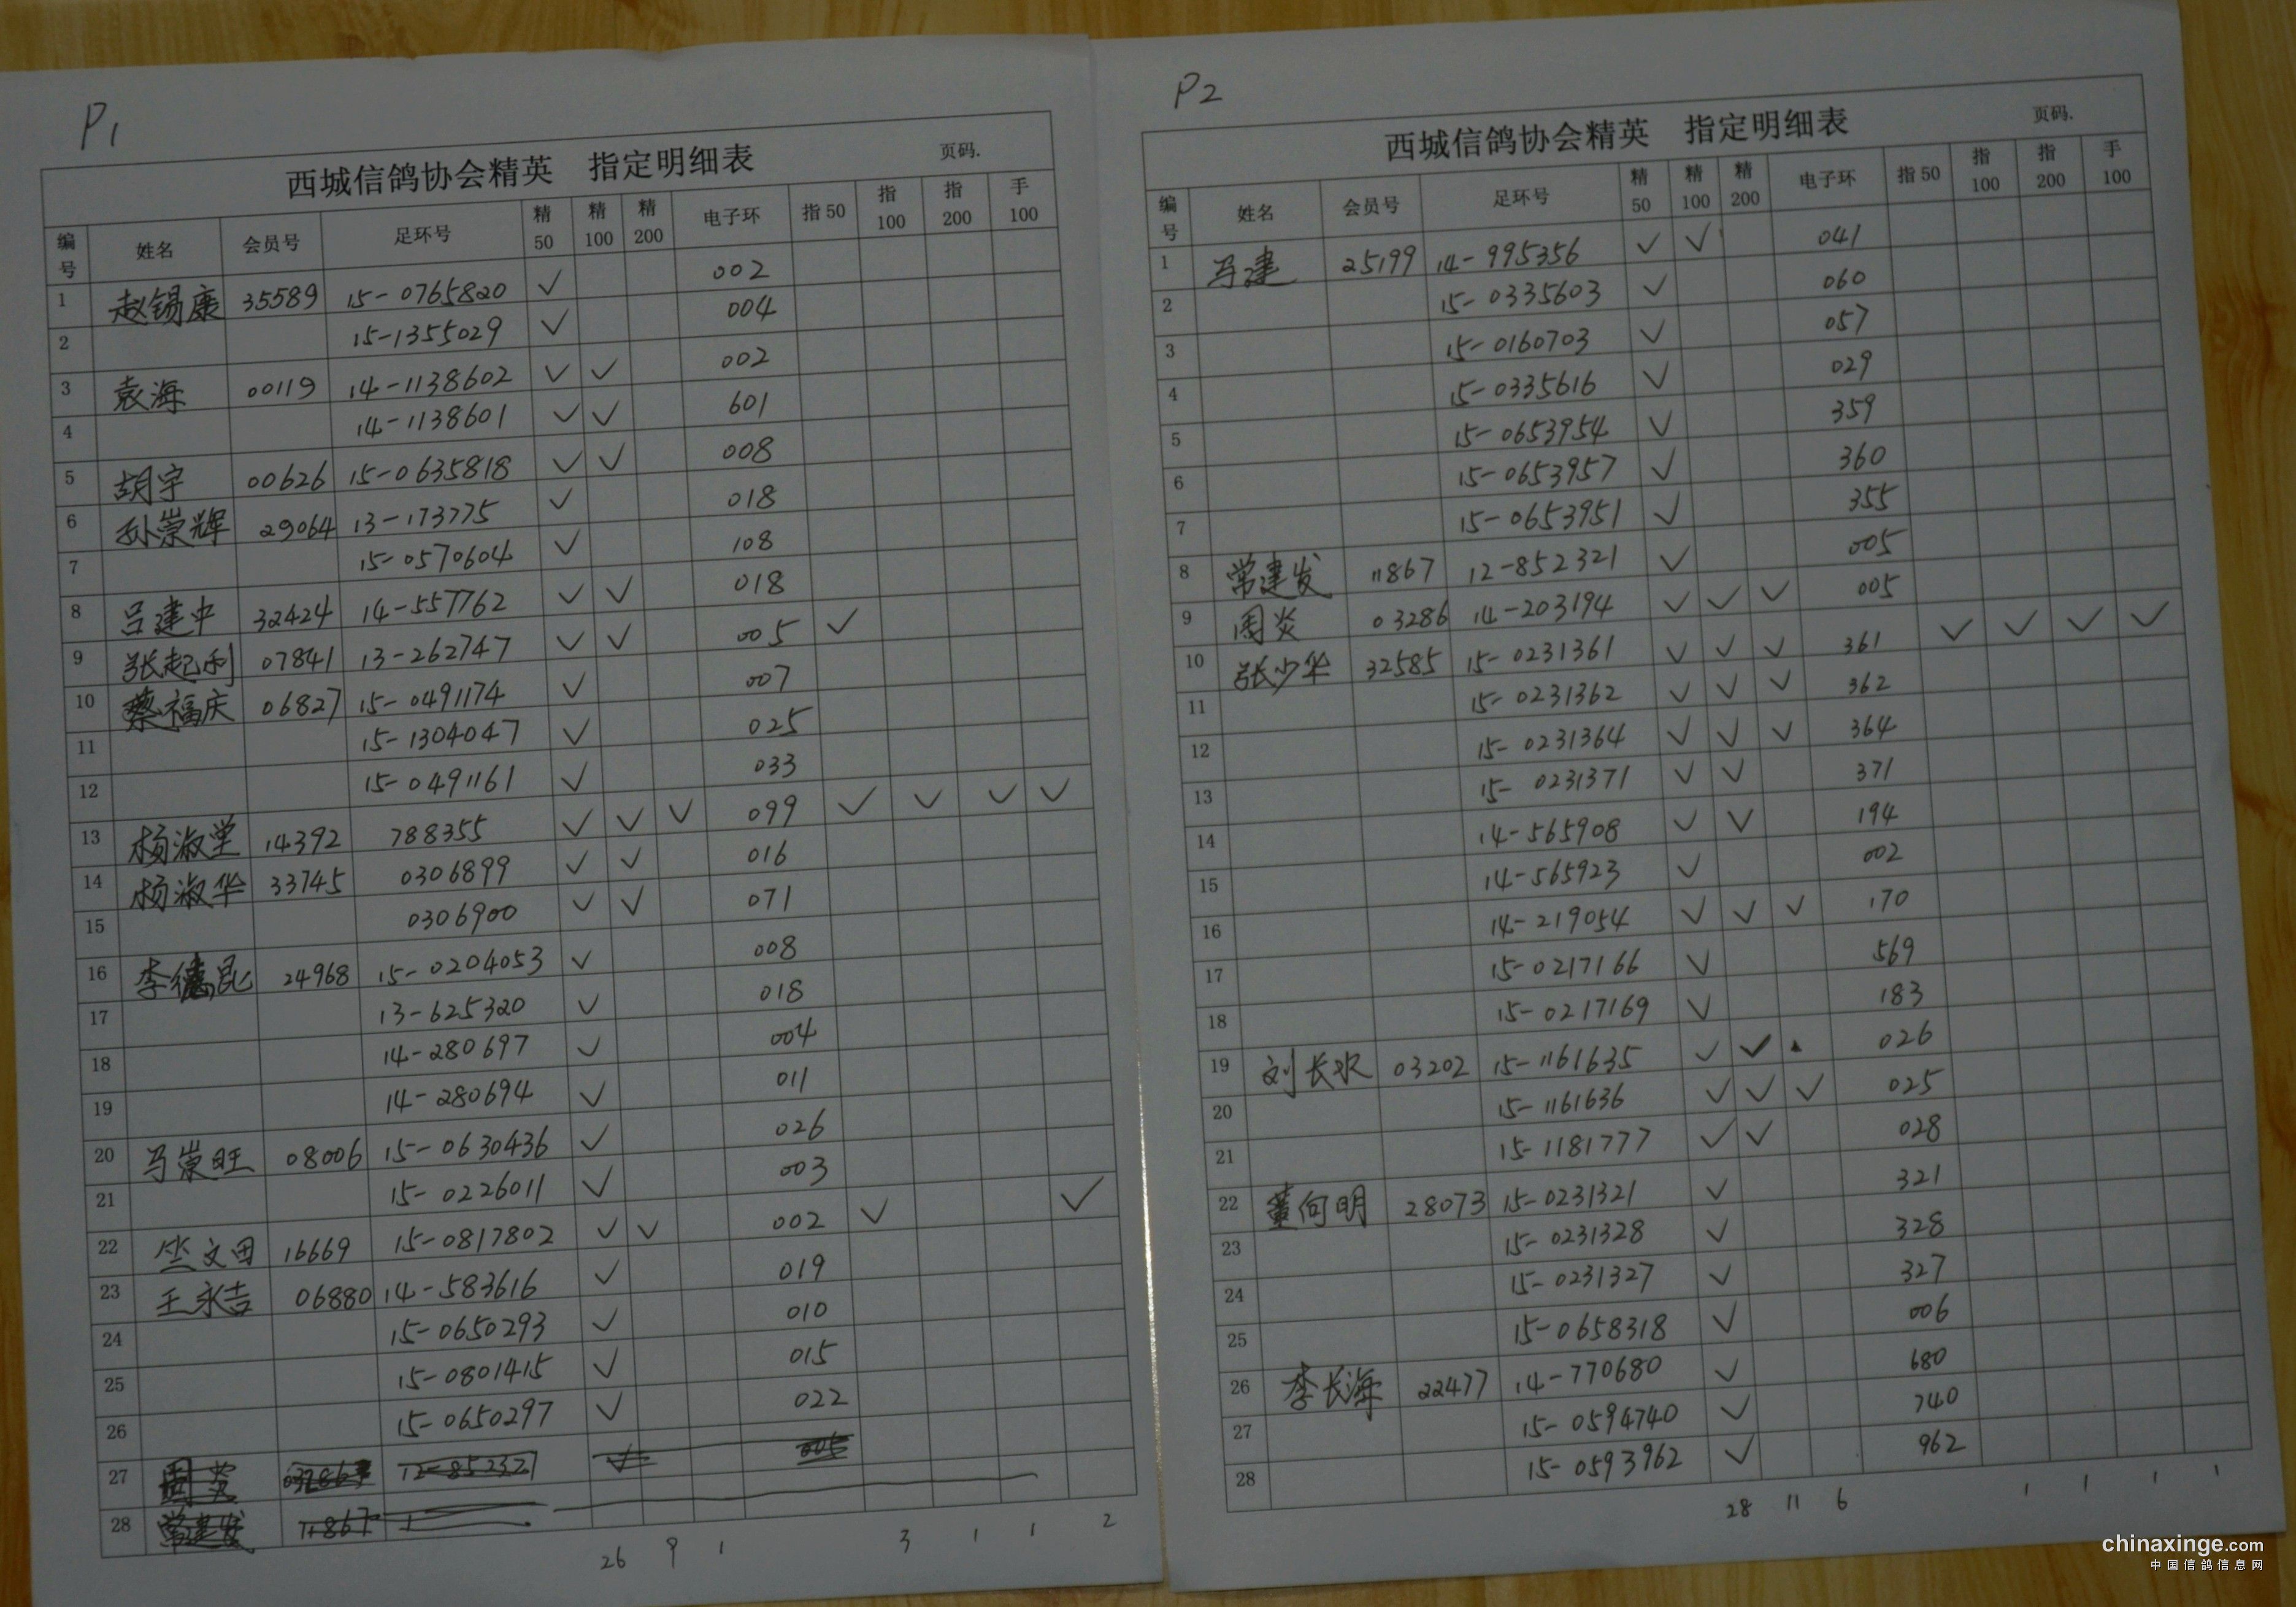 P1
西城信鸽协会精英 指定明细表 页码.
编号 姓名 会员号 足环号 精50 精100 精200 电子环 指50 指100 指200 手100
1 赵锡康 35589 15-0765820 ✓ 002
2 15-1355029 ✓ 004
3 袁海 00119 14-1138602 ✓ ✓ 002
4 14-1138601 ✓ ✓ 601
5 胡宇 00626 15-0635818 ✓ ✓ 008
6 孙崇辉 29064 13-173775 ✓ 018
7 15-0570604 ✓ 108
8 吕建中 32424 14-557762 ✓ ✓ 018
9 张起利 07841 13-262747 ✓ ✓ 005 ✓
10 蔡福庆 06827 15-0491174 ✓ 007
11 15-1304047 ✓ 025
12 15-0491161 ✓ 033
13 杨淑堂 14392 788355 ✓ ✓ ✓ 099 ✓ ✓ ✓ ✓
14 杨淑华 33745 0306899 ✓ ✓ 016
15 0306900 ✓ ✓ 071
16 李德昆 24968 15-0204053 ✓ 008
17 13-625320 ✓ 018
18 14-280697 ✓ 004
19 14-280694 ✓ 011
20 马崇旺 08006 15-0630436 ✓ 026
21 15-0226011 ✓ 003
22 竺文田 16669 15-0817802 ✓ ✓ 002 ✓ ✓
23 王永吉 06880 14-583616 ✓ 019
24 15-0650293 ✓ 010
25 15-0801415 ✓ 015
26 15-0650297 ✓ 022
27 周炎 12-852321 ✓ 005
28 常建发 11867
26 9 1 3 1 1 2
P2
西城信鸽协会精英 指定明细表 页码.
编号 姓名 会员号 足环号 精50 精100 精200 电子环 指50 指100 指200 手100
1 马建 25199 14-995356 ✓ ✓ 041
2 15-0335603 ✓ 060
3 15-0160703 ✓ 057
4 15-0335616 ✓ 029
5 15-0653954 ✓ 359
6 15-0653957 ✓ 360
7 15-0653951 ✓ 355
8 常建发 11867 12-852321 ✓ 005
9 周炎 03286 14-203194 ✓ ✓ ✓ 005
10 张少华 32585 15-0231361 ✓ ✓ ✓ 361 ✓ ✓ ✓ ✓
11 15-0231362 ✓ ✓ ✓ 362
12 15-0231364 ✓ ✓ ✓ 364
13 15-0231371 ✓ ✓ 371
14 14-565908 ✓ ✓ 194
15 14-565923 ✓ 002
16 14-219054 ✓ ✓ ✓ 170
17 15-0217166 ✓ 569
18 15-0217169 ✓ 183
19 刘长水 03202 15-1161635 ✓ ✓ 026
20 15-1161636 ✓ ✓ ✓ 025
21 15-1181777 ✓ ✓ 028
22 董向明 28073 15-0231321 ✓ 321
23 15-0231328 ✓ 328
24 15-0231327 ✓ 327
25 15-0658318 ✓ 006
26 李长海 22477 14-770680 ✓ 680
27 15-0594740 ✓ 740
28 15-0593962 ✓ 962
28 11 6 1 1 1 1
chinaxinge.com
中国信鸽信息网